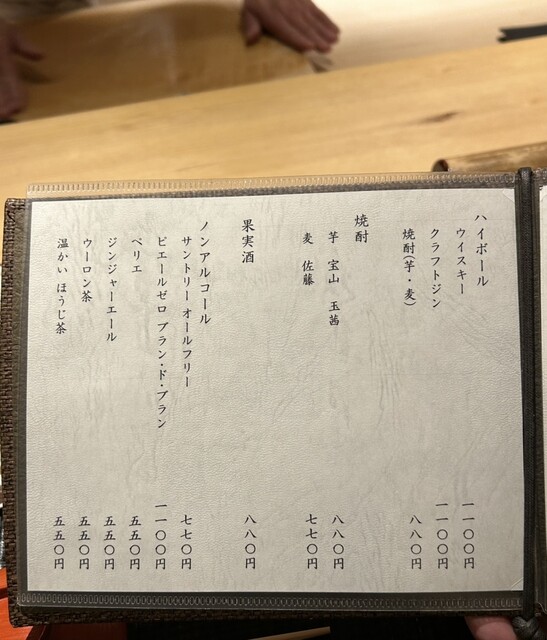 ハイボール
ウイスキー 一一〇〇円
クラフトジン 一一〇〇円
焼酎(芋・麦) 八八〇円
焼酎
芋 宝山 玉茜 八八〇円
麦 佐藤 七七〇円
果実酒 八八〇円
ノンアルコール
サントリー オールフリー 七七〇円
ピエールゼロ ブラン・ド・ブラン 一一〇〇円
ペリエ 五五〇円
ジンジャーエール 五五〇円
ウーロン茶 五五〇円
温かい ほうじ茶 五五〇円